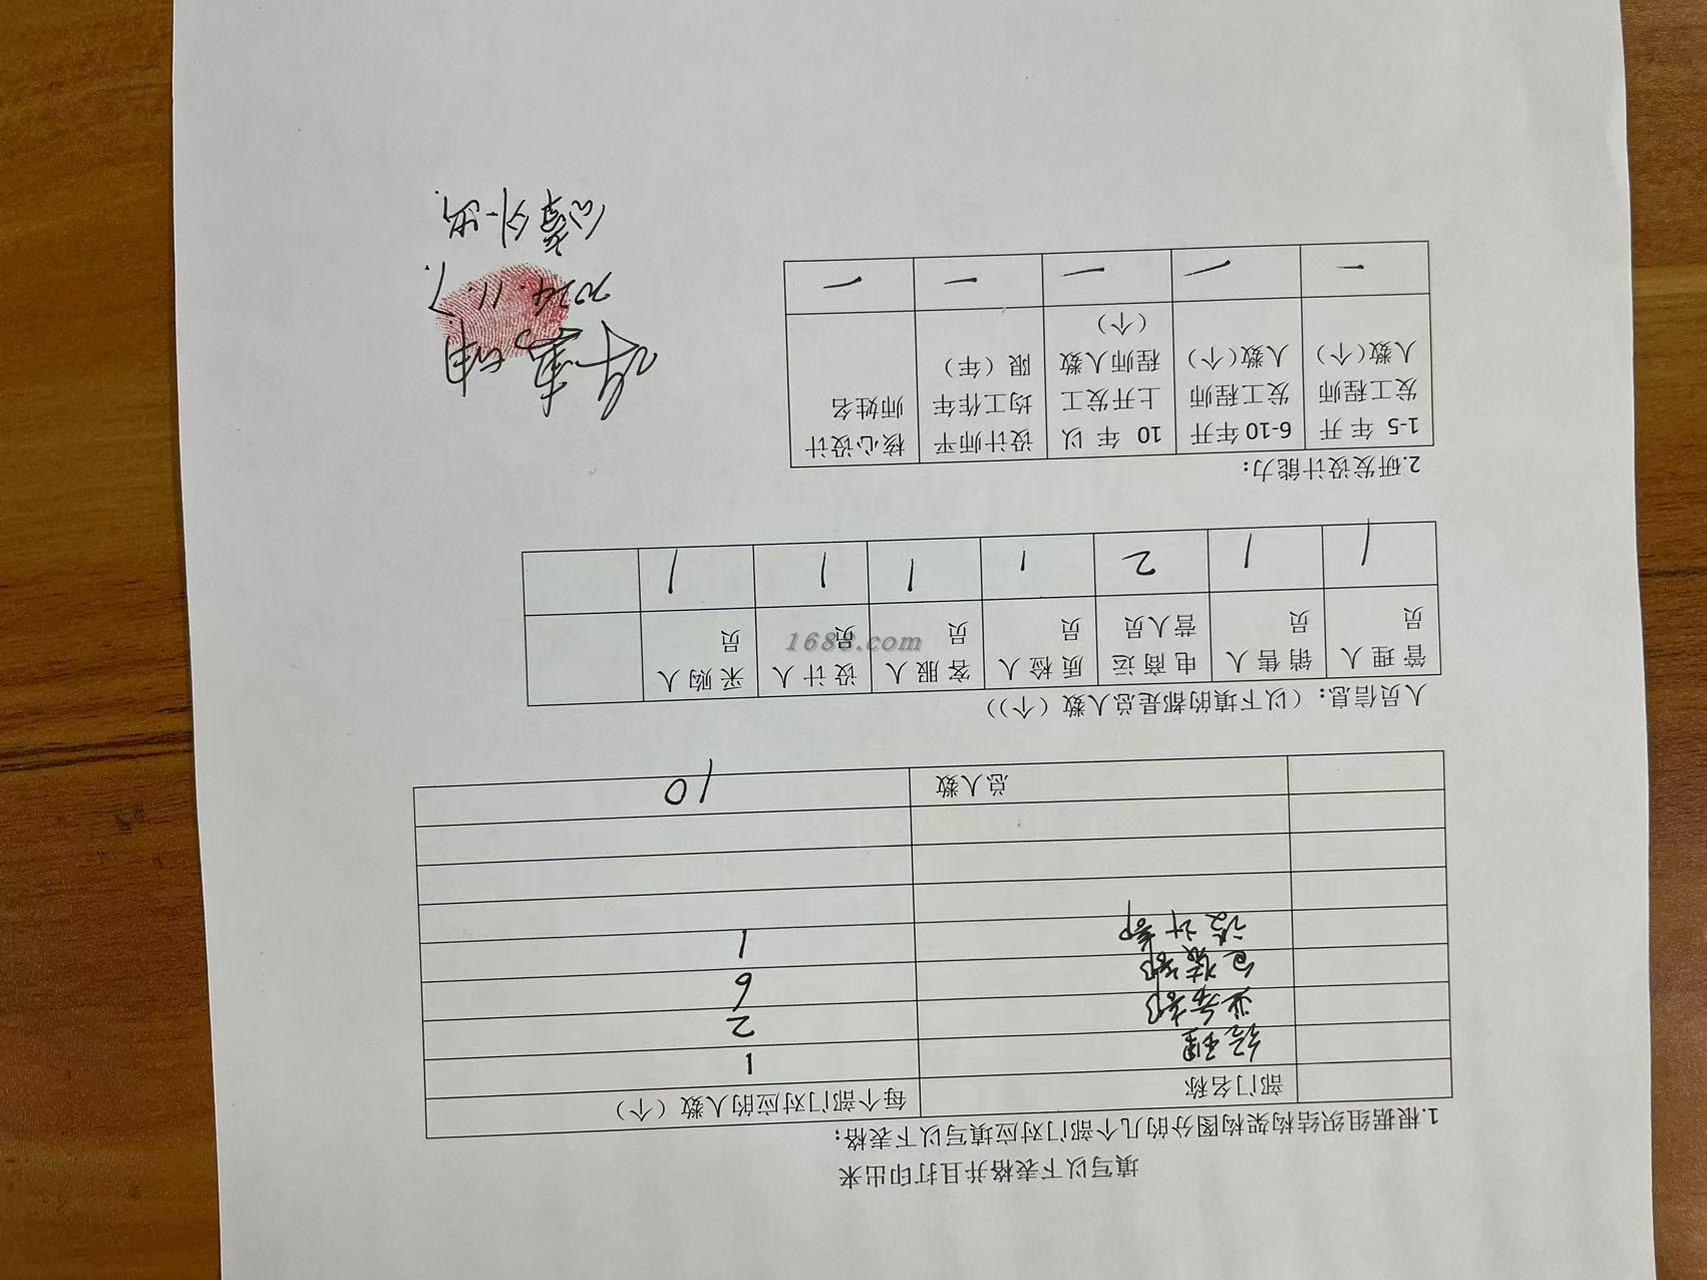 填写以下表格并且打印出来
1.根据组织结构架构图分的几个部门对应填写以下表格:
部门名称 每个部门对应的人数（个）
经理 1
业务部 2
包装部 6
设计部 1
总人数 10
人员信息:（以下填的都是总人数（个））
管理人员 销售人员 电商运营人员 质检人员 客服人员 设计人员 采购人员
1 1 2 1 1 1 1
2.研发设计能力:
1-5 年开发工程师人数(个) 6-10年开发工程师人数(个) 10 年以上开发工程师人数（个） 设计师平均工作年限（年） 核心设计师姓名
一 一 一 一 一
2024.11.7.
1688.com